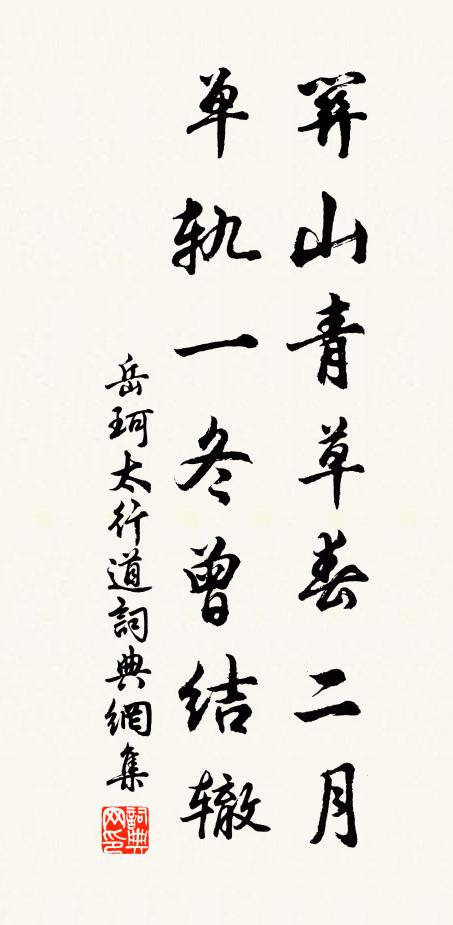 關山青草春二月
单轨一冬曾结辙
岳珂太行道詞典網集
詞典网印